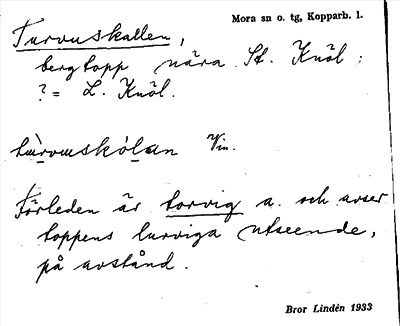 Mora sn o. tg, Kopparb. l.
Turvuskallen,
bergtopp nära St. Knöl;
?= L. Knöl.
Vin.
Förleden är torvig a. och avser
toppens lurviga utseende,
på avstånd.
Bror Lindén 1933